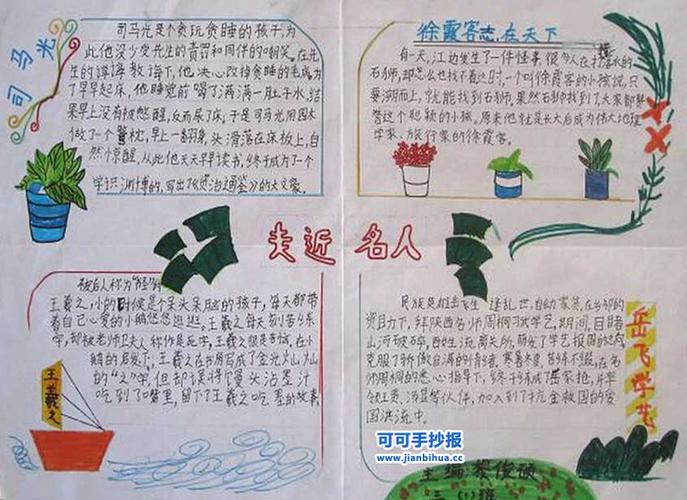 司马光
司马光是个贪玩贪睡的孩子,为
此他没少受先生的责罚和同伴的嘲笑。在先
生的谆谆教诲下,他决心改掉贪睡的毛病,为
了早早起床,他睡觉前喝了满满一肚子水,结
果早上没有被憋醒,反而尿了床,于是司马光用园木
做了一个警枕,早上一翻身,头滑落在床板上,自
然惊醒,从此他天天早读书,终于成为了一个
学识渊博的,写出《资治通鉴》的大文豪。
徐霞客志在天下
有一天,江边发生了一件怪事,很多人在打落水的
石狮,却怎么也找不着。这时,一个叫徐霞客的小孩说,只
要溯而上,就能找到石狮,果然石狮找到了,大家都赞
誉这个聪颖的小孩,原来他就是长大后成为伟大地理
学家、旅行家的徐霞客。
走近名人
王羲之
被后人称为"
王羲之,小的时候是个呆头呆脑的孩子,每天都带
着自己心爱的小鹅悠悠逛逛。王羲之每天刻苦练
字,却被老师卫夫人称作是死字,王羲之很是苦恼,在小
鹅的启发下,王羲之在书房写成了金光灿灿
的"之"字,但却误将馒头沾墨汁
吃到了嘴里,留下了王羲之吃墨的故事
岳飞学艺
民族英雄岳飞生逢乱世,自幼家贫,在乡邻的
资助下,拜陕西名师周桐习武学艺,期间,目睹
山河破碎,百姓流离失所,萌发了学艺报国的志向,
克服了骄傲自满的情绪。寒暑冬夏,苦练不辍,在名
师周桐的悉心指导下,终于练成了岳家枪,并率
领王贵,汤显等伙伴,加入到了抗金救国的爱
国洪流中。
可可手抄报
www.jianbihua.cc
主编:蔡俊硕
三(1)班